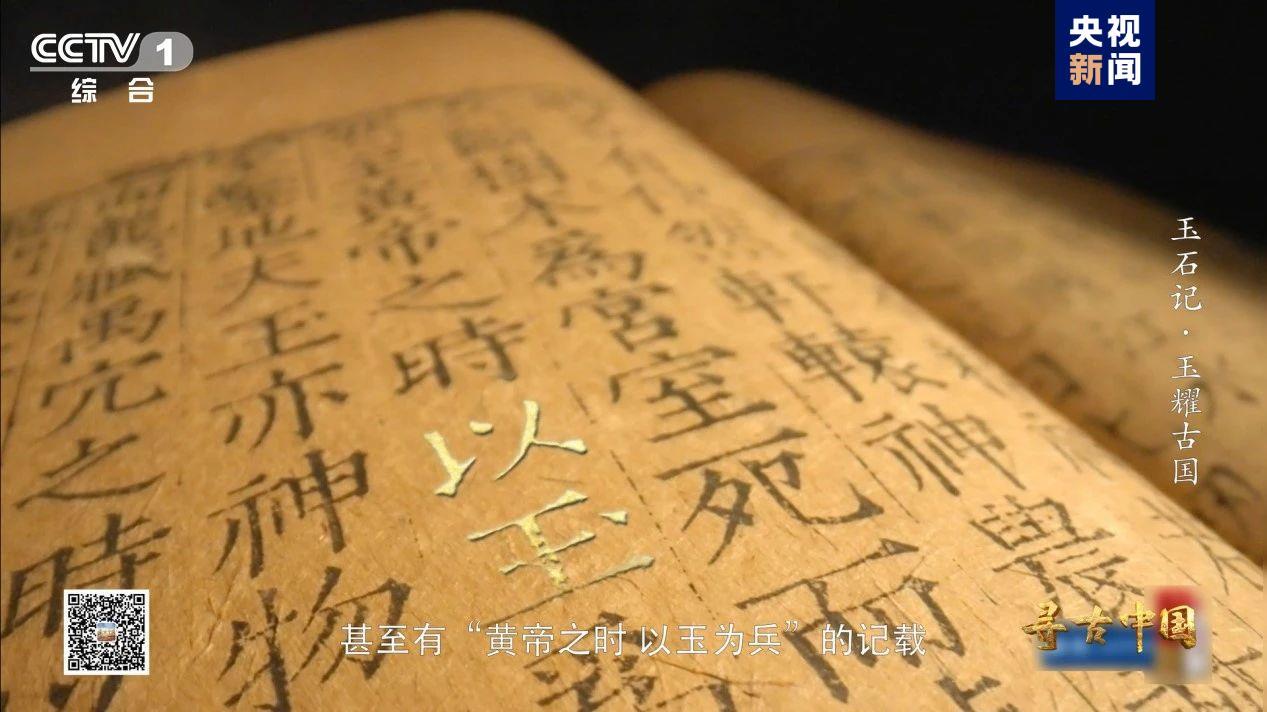 CCTV 1
综合
央视
新闻
玉石记·玉耀古国
軒轅神農
樹木為宮室死而
至黃帝之時以玉為
地夫玉亦神物
龍臧禹穴之時
甚至有“黄帝之时 以玉为兵”的记载
寻古中国